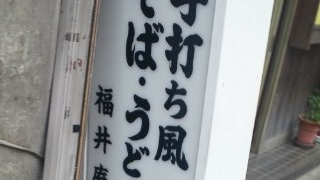 手打ち風
そば・うど
福井庵